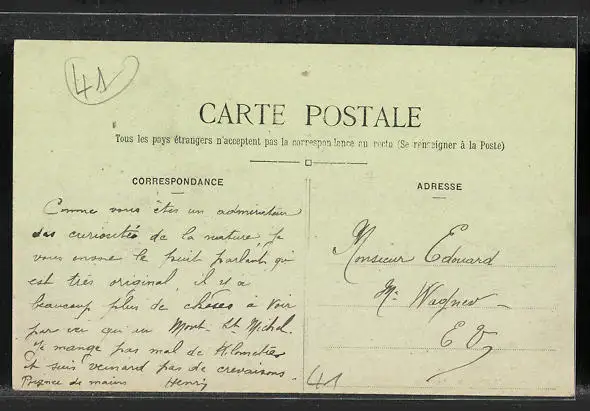 41
CARTE POSTALE
Tous les pays étrangers n'acceptent pas la correspondance au recto (Se renseigner à la Poste)
CORRESPONDANCE
Comme vous êtes un admirateur
des curiosités de la nature, je
vous envoie le puit parlant qui
est très original, il y a
beaucoup plus de choses à voir
par ici qu'au Mont St Michel.
Je mange pas mal de Kilomètres
et suis veinard pas de crevaisons.
Poignée de mains Henry
ADRESSE
Monsieur Edouard
Wagner
E V
41